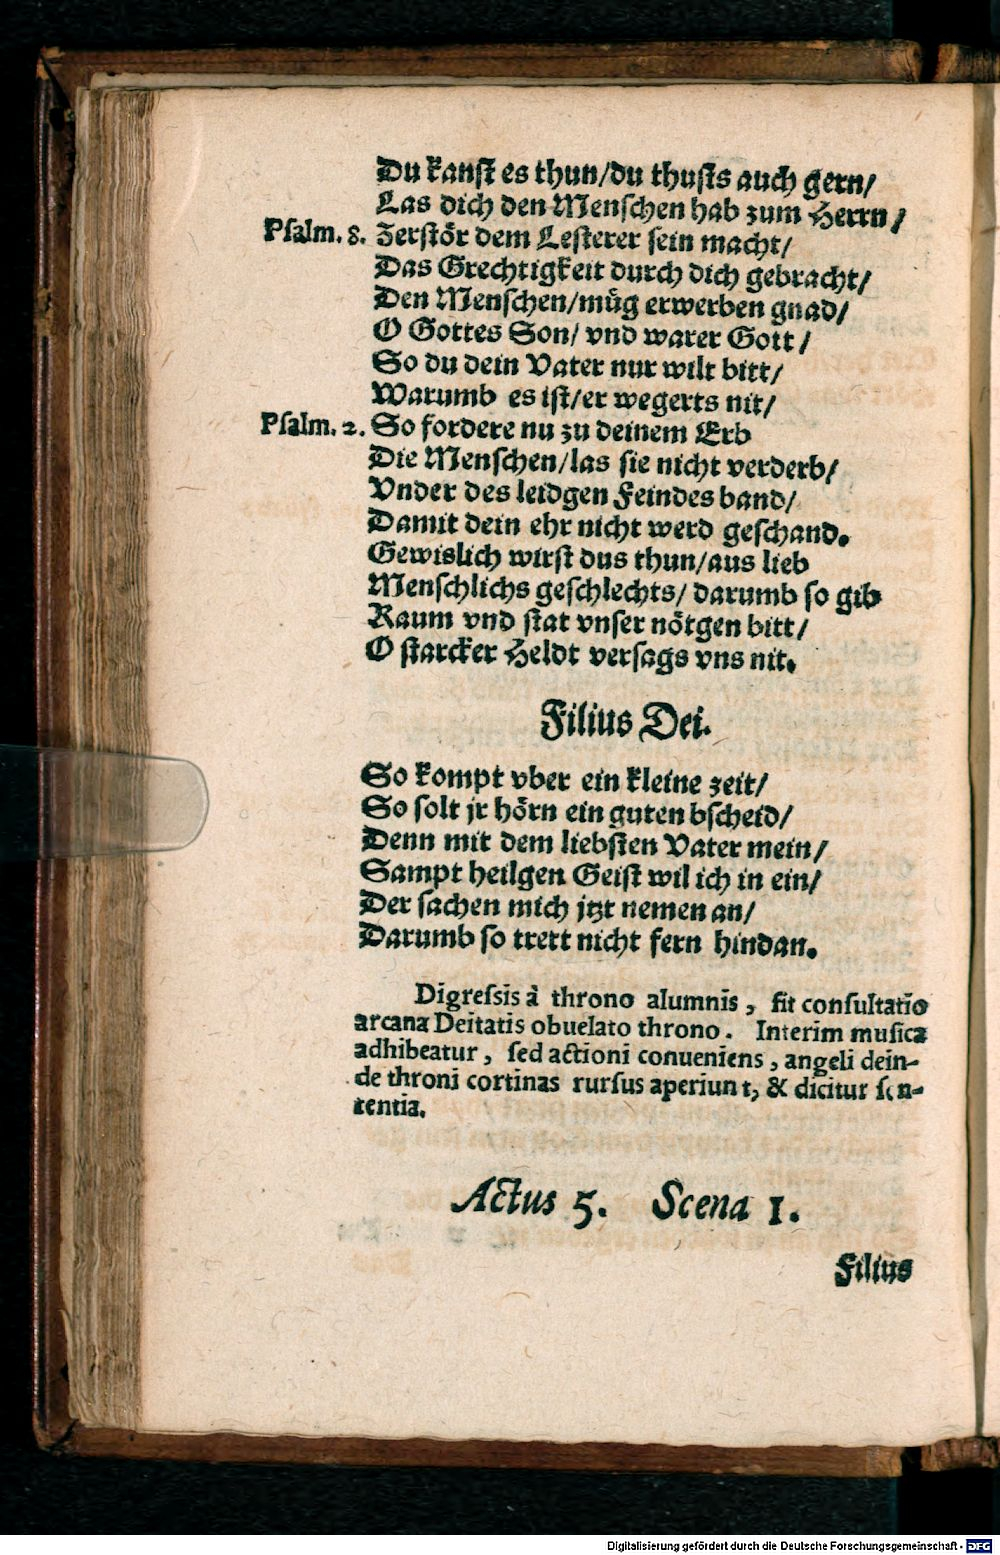 Du kanſt es thun/du thuſts auch gern/
Las dich den Menſchen hab zum Herrn/
Pſalm. 8. Zerſtör dem Leſterer ſein macht/
Das Grechtigkeit durch dich gebracht/
Den Menſchen/müg erwerben gnad/
O Gottes Son/ vnd warer Gott/
So du dein Vater nur wilt bitt/
Warumb es iſt/er wegerts nit/
Pſalm. 2. So fordere nu zu deinem Erb
Die Menſchen/las ſie nicht verderb/
Vnder des leidgen Feindes band/
Damit dein ehr nicht werd geſchand.
Gewislich wirſt dus thun/aus lieb
Menſchlichs geſchlechts/ darumb ſo gib
Raum vnd ſtat vnſer nötgen bitt/
O ſtarcker Heldt verſags vns nit.
Filius Dei.
So kompt vber ein kleine zeit/
So ſolt jr hörn ein guten bſcheid/
Denn mit dem liebſten Vater mein/
Sampt heilgen Geiſt wil ich in ein/
Der ſachen mich jtzt nemen an/
Darumb ſo trett nicht fern hindan.
Digreſsis à throno alumnis, fit conſultatio
arcana Deitatis obuelato throno. Interim muſica
adhibeatur, ſed actioni conueniens, angeli dein-
de throni cortinas rurſus aperiunt, & dicitur ſen-
tentia.
Actus 5. Scena 1.
Filius
Digitalisierung gefördert durch die Deutsche Forschungsgemeinschaft - DFG